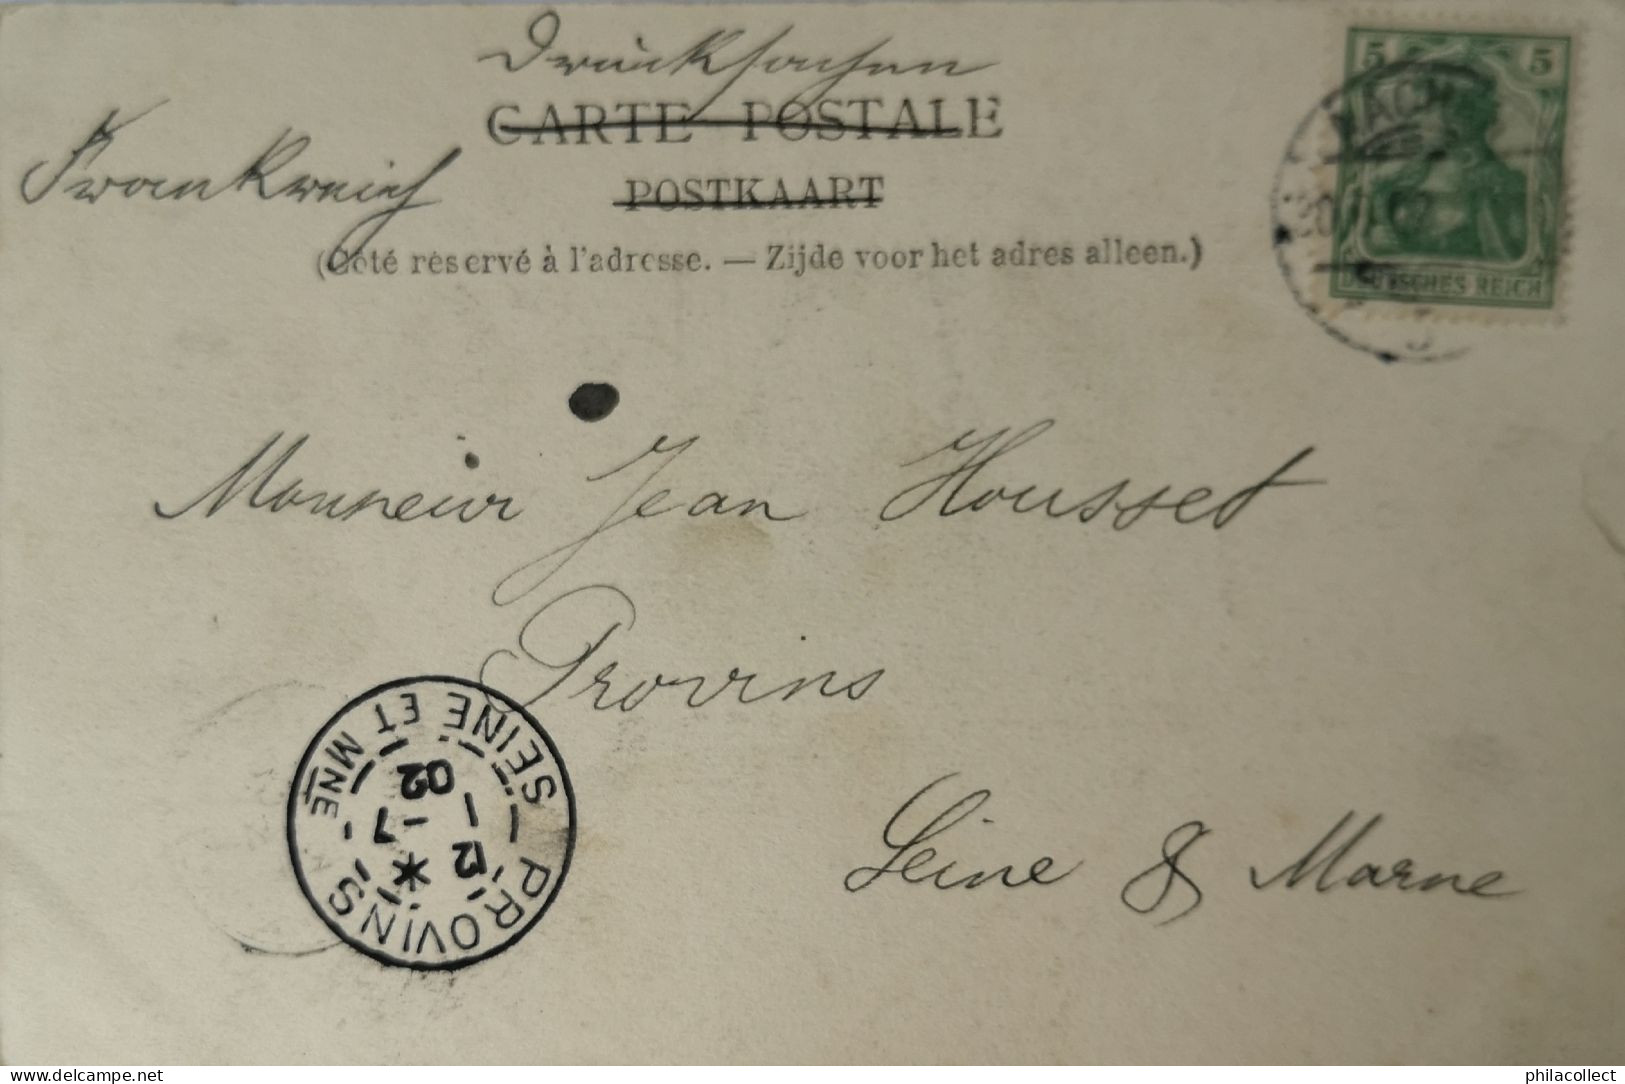 Drucksachen
CARTE POSTALE
Frankreich
POSTKAART
(Côté réservé à l'adresse. — Zijde voor het adres alleen.)
5 5
AACHEN
DEUTSCHES REICH
Monsieur Jean Housset
Provins
Seine & Marne
PROVINS SEINE ET MNE
12
1 - 7
02
philacollect